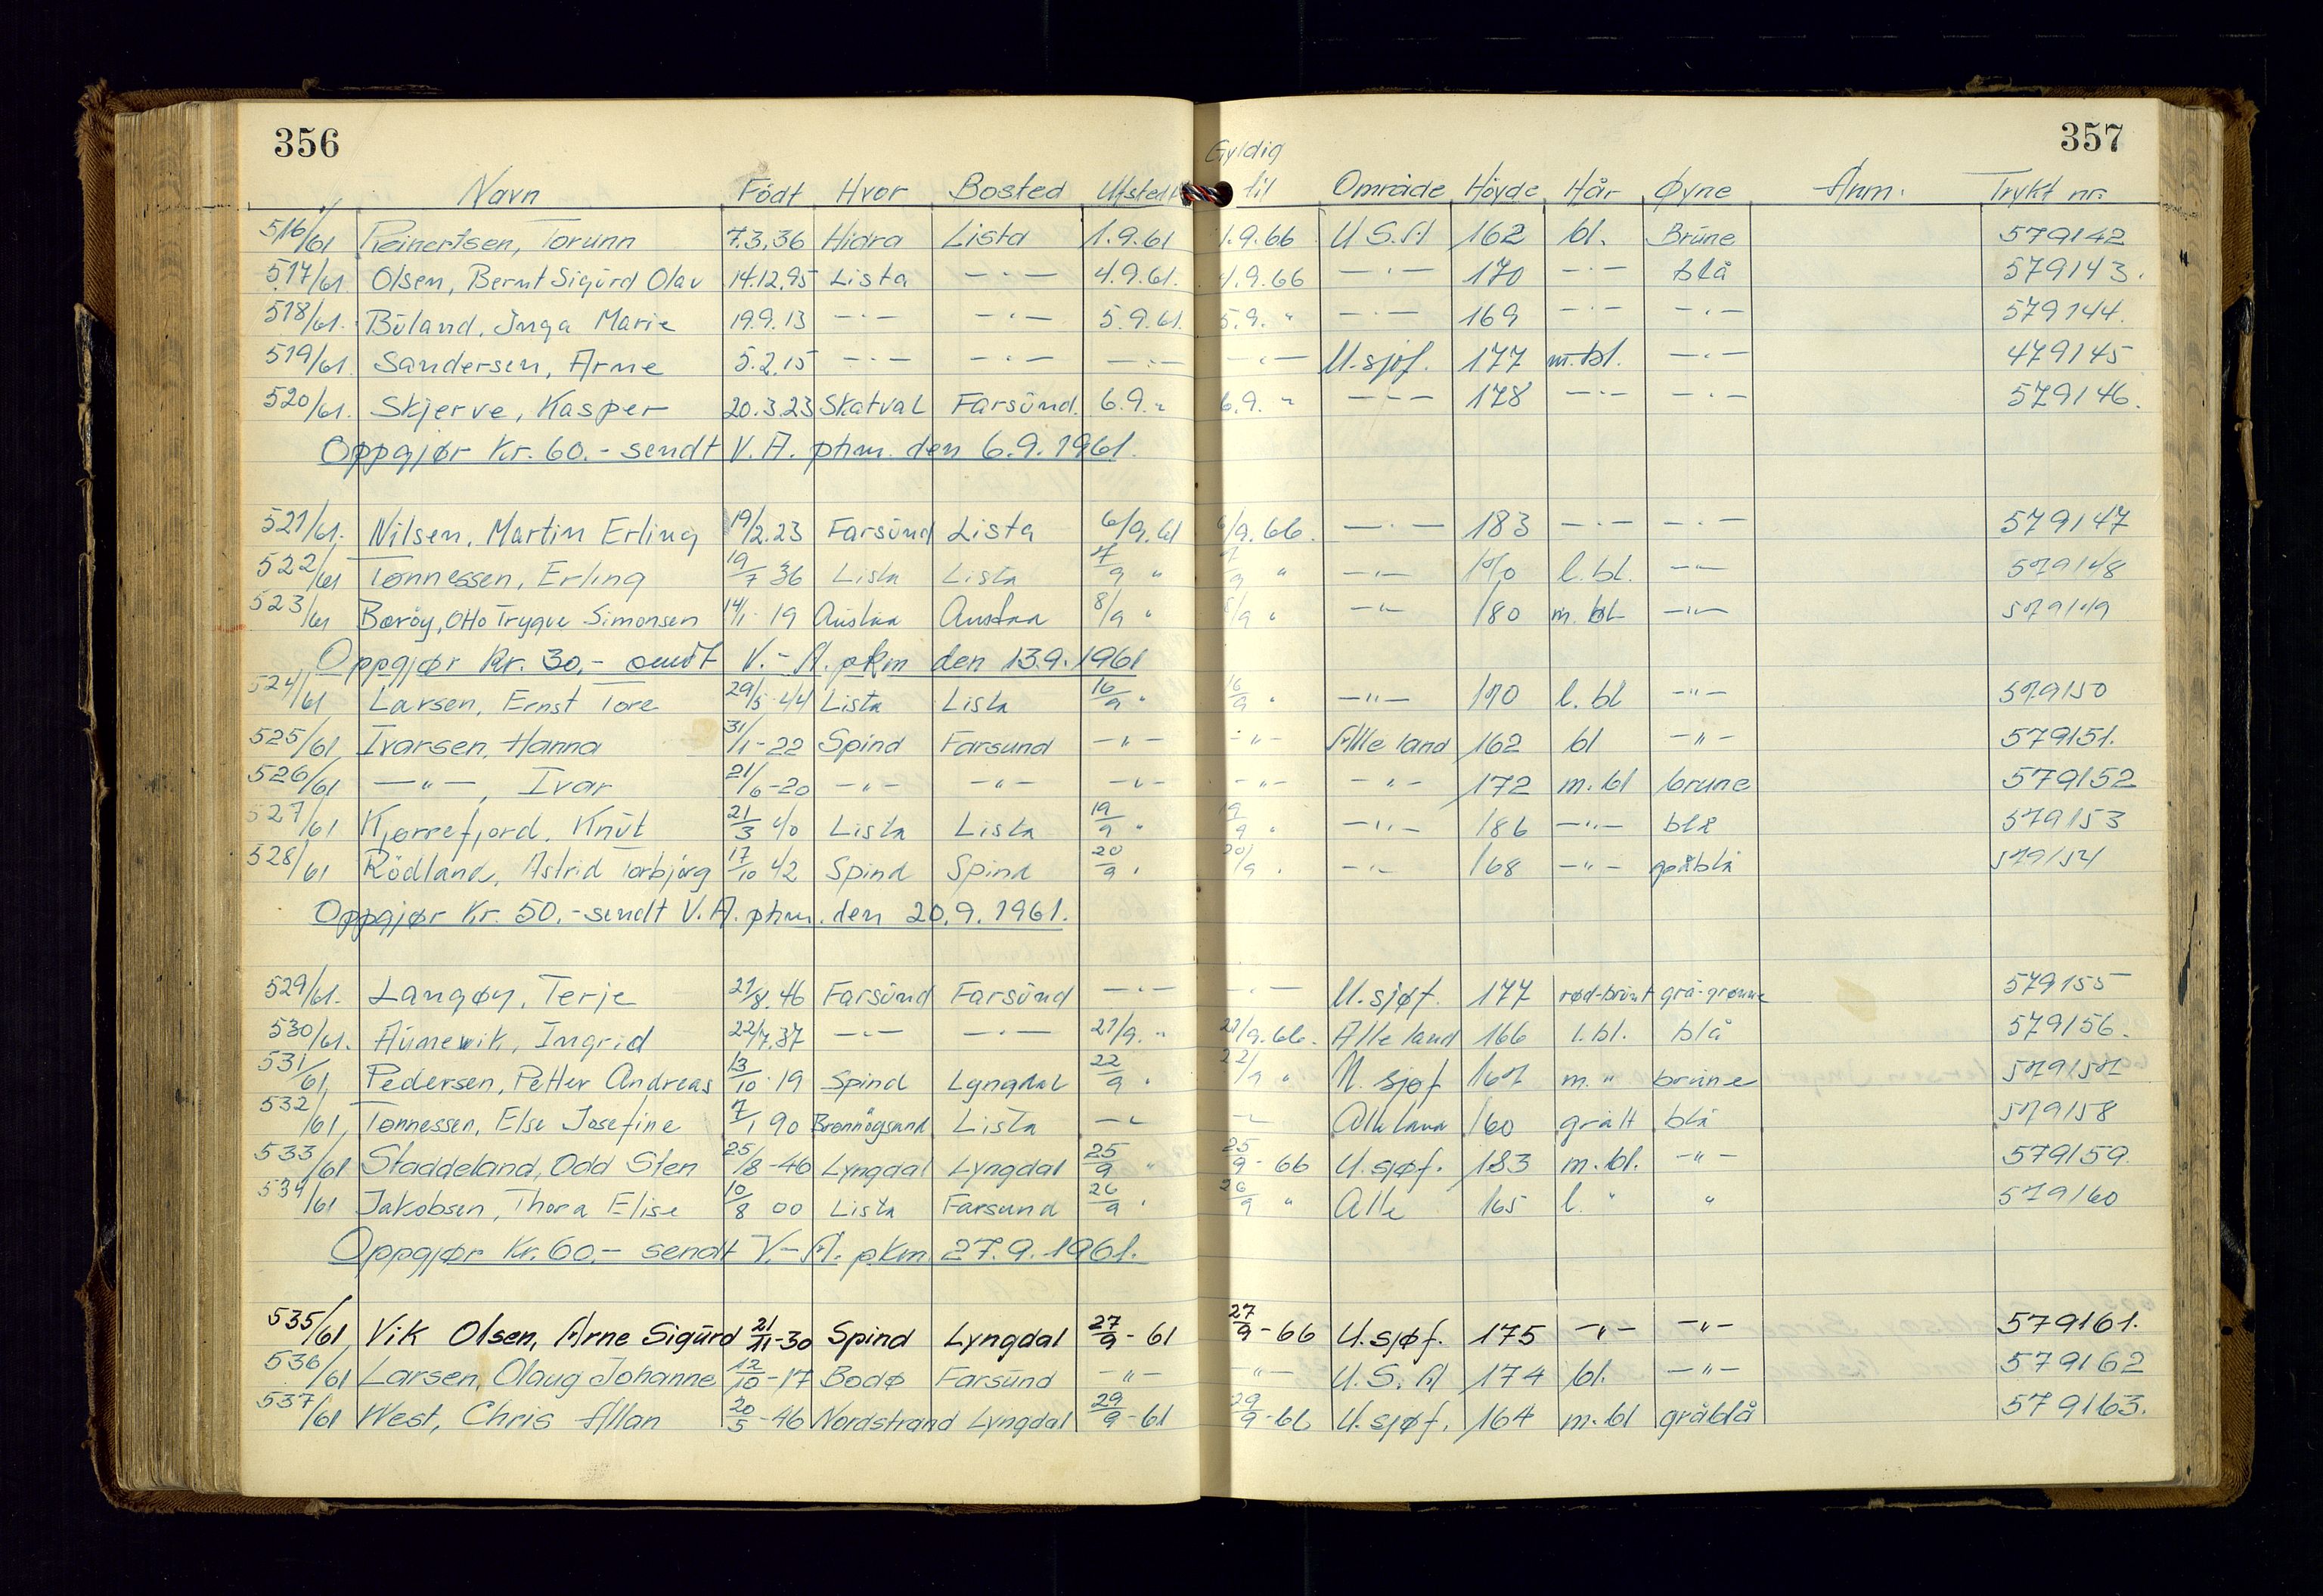 356
357
Navn Födt Hvor Bosted Utstedt Gyldig til Område Höyde Hår Øyne Anm: Trykt nr.
516/61 Reinertsen, Torunn 7.3.36 Hidra Lista 1.9.61 1.9.66 U.S.A 162 bl. Brune 579142
517/61. Olsen, Bernt Sigurd Olav 14.12.95 Lista —·— 4.9.61. 4.9.66 —·— 170 —·— blå 579143.
518/61. Büland, Inga Marie 19.9.13 —·— —·— 5.9.61. 5.9. " —·— 169 —·— —·— 579144.
519/61. Sandersen, Arne 5.2.15 —·— —·— —·— —·— U.sjøf. 177 m.bl. —·— 479145
520/61. Skjerve, Kasper 20.3.23 Skatval Farsund. 6.9. " 6.9. " —·— 178 —·— —·— 579146.
Oppgjør Kr. 60.- sendt V.A. phm. den 6.9.1961.
521/61. Nilsen, Martin Erling 19/2.23 Farsund Lista 6/9.61 6/9.66. —·— 183 —·— —·— 579147
522/61 Tønnessen, Erling 19/7 36 Lista Lista 7/9 " 7/9 " —"— 170 l.bl. —"— 579148
523/61 Barøy, Otto Trygve Simonsen 14/1 19 Austaa Austaa 8/9 " 8/9 " —"— 180 m. bl —"— 579149
Oppgjør kr. 30,- sendt V.-A. pkm den 13.9.1961
524/61 Larsen, Ernst Tore 29/5 44 Lista Lista 16/9 " 16/9 " —"— 170 l. bl —"— 579150
525/61 Ivarsen, Hanna 31/1-22 Spind Farsund —"— —"— Alle land 162 bl —"— 579151.
526/61 —"—, Ivar 21/6-20 —"— —"— —"— —"— —"— 172 m. bl brune 579152
527/61 Kjørrefjord, Knut 21/3 40 Lista Lista 19/9 " 19/9 " —"— 186 —"— blå 579153
528/61 Rödland, Astrid Torbjørg 17/10 42 Spind Spind 20/9 " 20/9 " —"— 168 —"— gråblå 579154
Oppgjør Kr. 50,- sendt V.A. phm. den 20.9.1961.
529/61. Langøy, Terje 21/8.46 Farsund Farsund —·— —·— U.sjøf. 177 rød-brunt grå-grønne 579155
530/61. Aunevik, Ingrid 22/7.37 —·— —·— 21/9. " 21/9.66. Alle land 166 l.bl. blå 579156.
531/61, Pedersen, Petter Andreas 13/10 19 Spind Lyngdal 22/9 " 22/9 " U. sjøf 167 m. " brune 579157
532/61, Tønnessen, Else Josefine 7/1 90 Brønnøysund Lista —"— —"— Alle land 160 grått blå 579158
533/61 Staddeland, Odd Sten 25/8-46 Lyngdal Lyngdal 25/9 " 25/9-66 U.sjøf. 183 m.bl. —"— 579159
534/61 Jakobsen, Thora Elise 10/8 00 Lista Farsund 26/9 " 26/9 " Alle 165 l. " " 579160
Oppgjør Kr. 60.- sendt V.-A. pkm. 27.9.1961.
535/61, Vik Olsen, Arne Sigurd 21/11-30 Spind Lyngdal 27/9-61 27/9-66 U.sjøf. 175 —"— —"— 579161.
536/61 Larsen, Olaug Johanne 12/10-17 Bodø Farsund —"— —"— U.S.A 174 bl. —"— 579162
537/61 West, Chris Allan 20/5-46 Nordstrand Lyngdal 29/9-61 29/9-66 U.sjøf. 164 m.bl gråblå 579163.